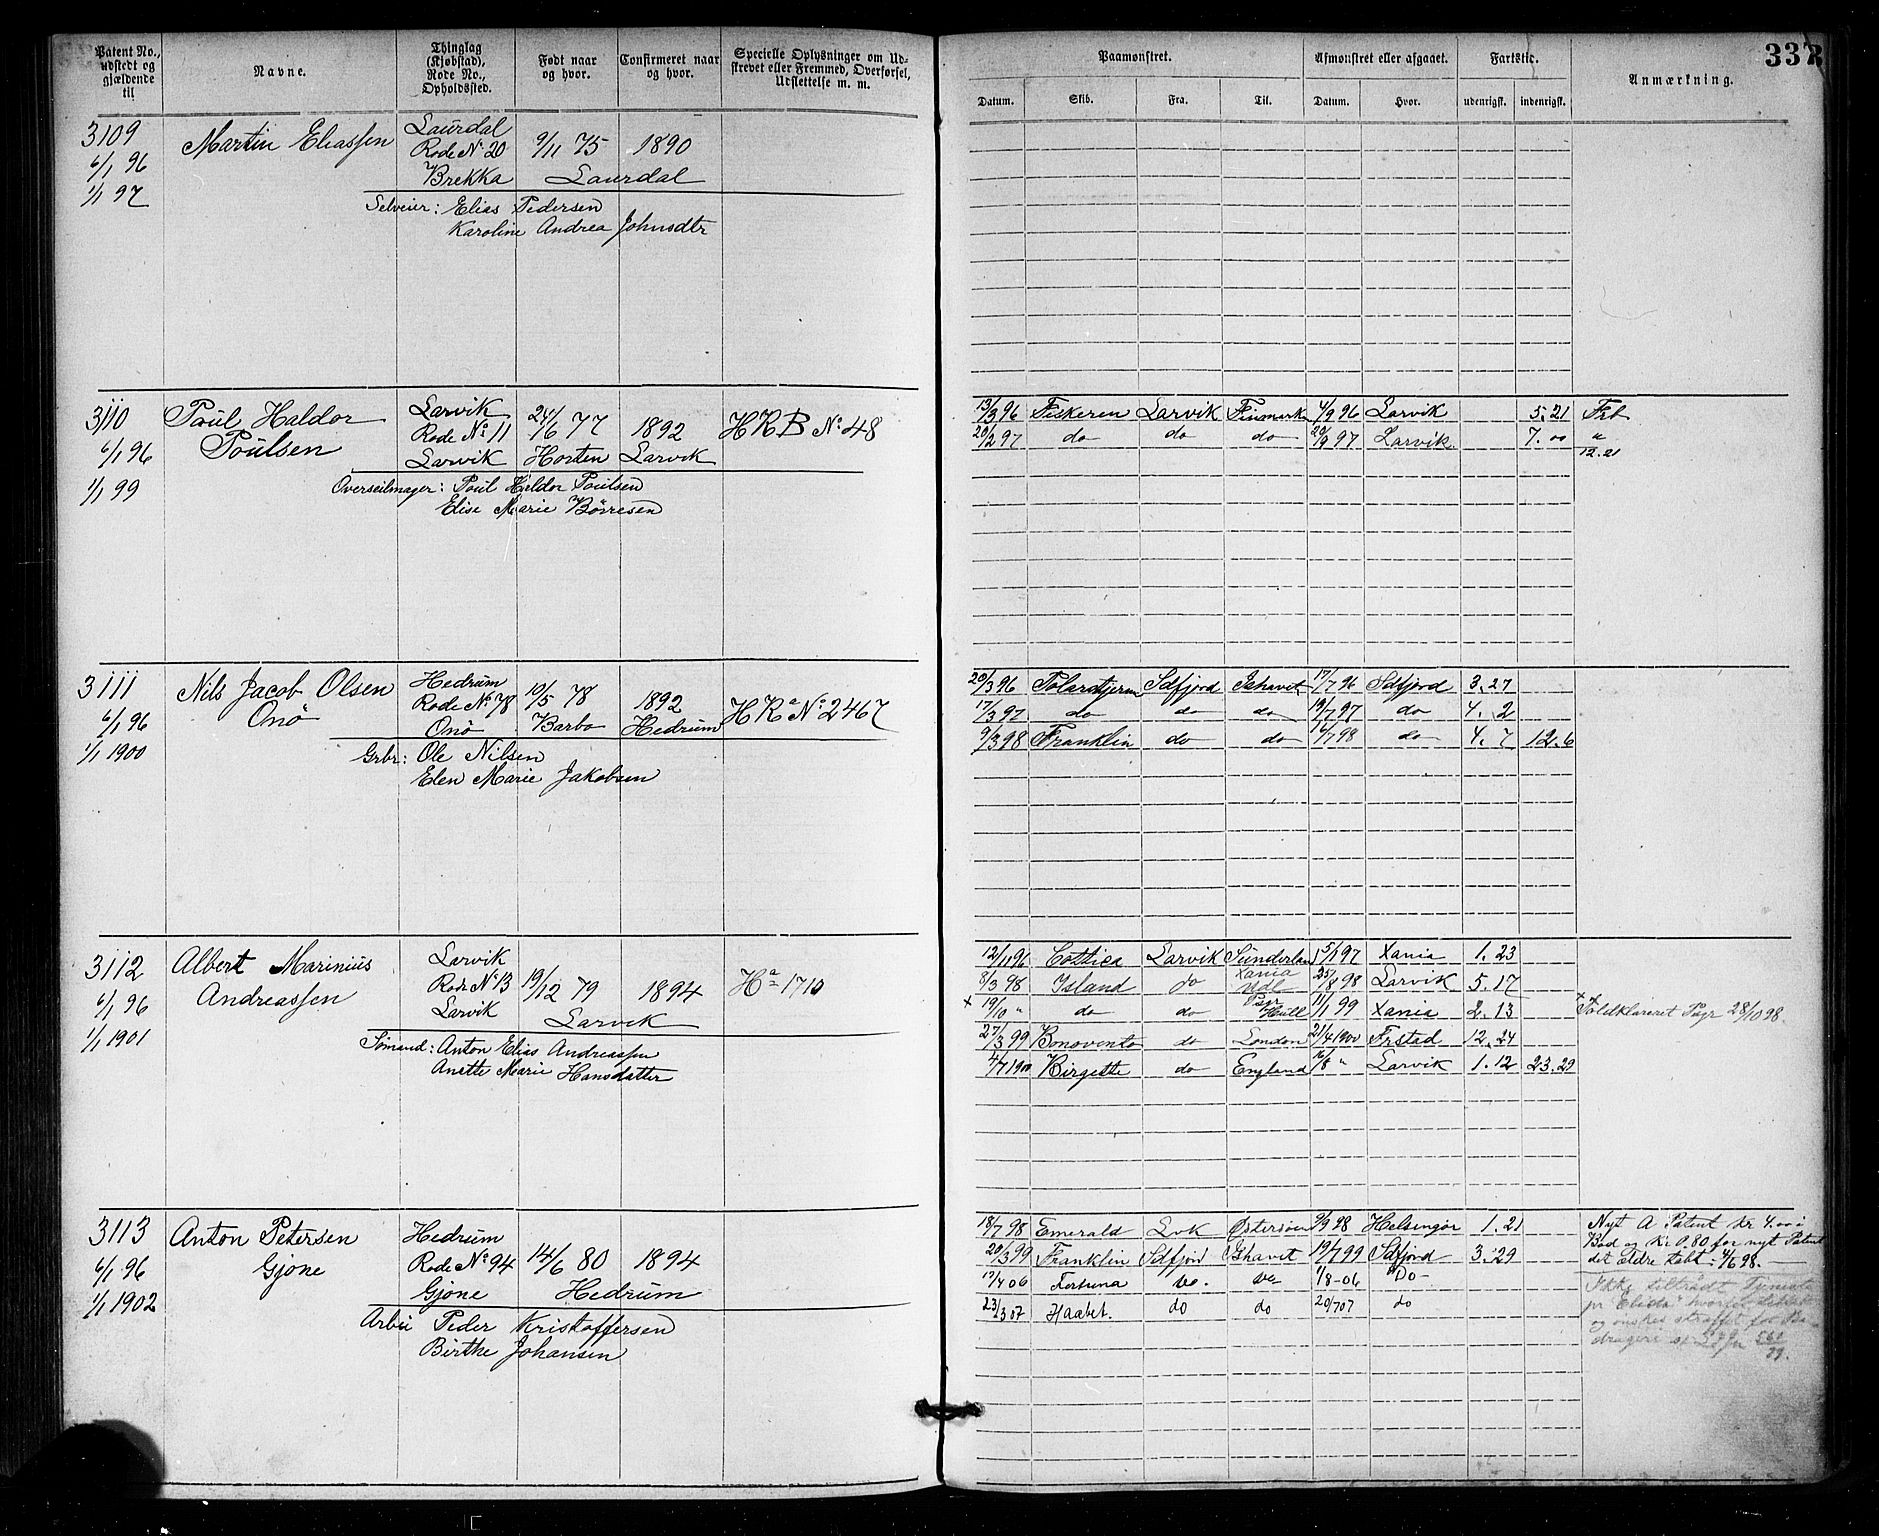 Patent No., udstedt og gjældende til
Navne.
Thinglag (Kjøbstad), Rode No., Opholdssted.
Født naar og hvor.
Confirmeret naar og hvor.
Specielle Oplysninger om Udskrevet eller Fremmed, Overførsel, Udslettelse m. m.
Paamønstret.
Datum. Skib. Fra. Til.
Afmønstret eller afgaaet.
Datum. Hvor.
Fartstid.
udenrigsk. indenrigsk.
Anmærkning.
337
3109 Martin Eliassen Laurdal
6/1 96 Rode № 20 9/11 75 1890
1/1 97 Brekka Laurdal
Selveier: Elias Pedersen
Karoline Andrea Johnsdtr
3110 Poul Haldor Poulsen Larvik
6/1 96 Rode № 11 24/6 77 1892 HRB № 48
1/1 99 Larvik Horten Larvik
Overseilmager: Poul Haldor Poulsen
Elise Marie Børresen
13/3 96 Fiskeren Larvik Finmarken 4/9 96 Larvik 5.21
20/2 97 do do do 20/9 97 Larvik 7.00 "
12.21
3111 Nils Jacob Olsen Onø Hedrum
6/1 96 Rode № 78 10/5 78 1892 HRa № 2467
1/1 1900 Onø Barbo Hedrum
Grbr: Ole Nilsen
Elen Marie Jakobsen
20/3 96 Polarstjernen Sdfjord Ishavet 17/7 96 Sdfjord 3.27
17/3 97 do do do 19/7 97 do 4.2
9/3 98 Franklin do do 16/7 98 do 4.7 12.6
3112 Albert Marinius Andreassen Larvik
6/1 96 Rode № 13 19/12 79 1894 Ha 1710
1/1 1901 Larvik Larvik
Sømand: Anton Elias Andreassen
Anette Marie Hansdatter
12/11 96 Cottica Larvik Sunderland 5/1 97 Xania 1.23
8/3 98 Island do Xania Udl 25/8 98 Larvik 5.17
x 19/10 " do do Pgr Hull 11/1 99 Xania 2.13 Toldklareret Pgr 28/10 98.
27/3 99 Bonovento do London 21/4 1900 Frstad 12.24
4/7 1900 Birgette do England 16/8 " Larvik 1.12 23.29
3113 Anton Petersen Gjone Hedrum
6/1 96 Rode № 94 14/6 80 1894
1/1 1902 Gjone Hedrum
Arbei Peder Kristoffersen
Birthe Johansen
18/7 98 Emerald Lvk Østersøen 9/9 98 Helsingør 1.21
20/3 99 Franklin Sdfjord Ishavet 19/7 99 Sdfjord 3.29
17/4 06 Fortuna do. do 1/8-06 Do
23/3 07 Haabet. do do 20/7 07 do
Nyt A Patent kr 4.00 i
Bod og kr 0.80 for nyt Patent
det ældre tabt. 4/6 98.
Ikke tiltrådt
og ønskes straffet for